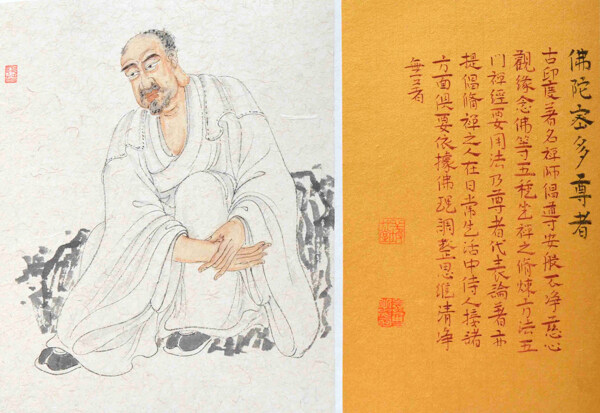 佛陀密多尊者
古印度著名禅师倡導安般不净慈心
觀缘念佛等五種坐禅之修煉方法五
门禅經要用法乃尊者代表論著亦
提倡修禅之人在日常生活中待人接諸
方面俱要依據佛理調整思維清净
無者